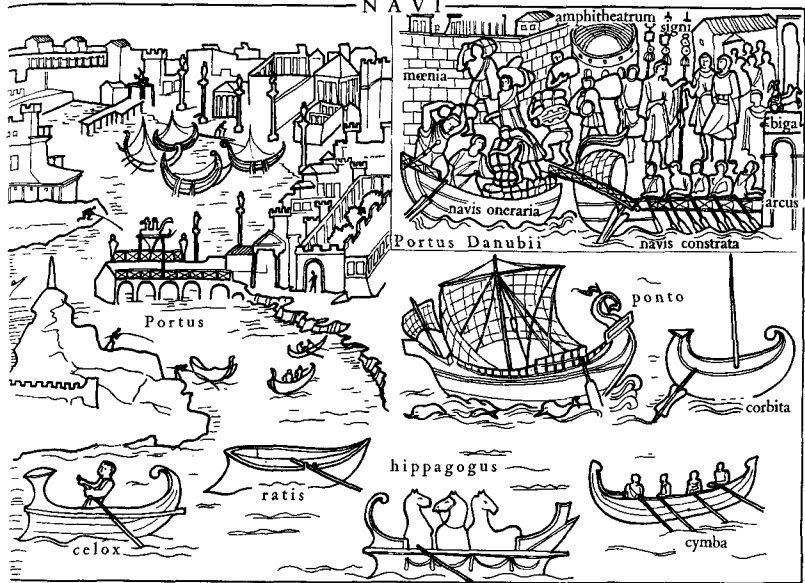 NAVI
amphitheatrum
signi
mœnia
biga
navis oneraria
arcus
Portus Danubii
navis constrata
ponto
Portus
corbita
hippagogus
ratis
celox
cymba